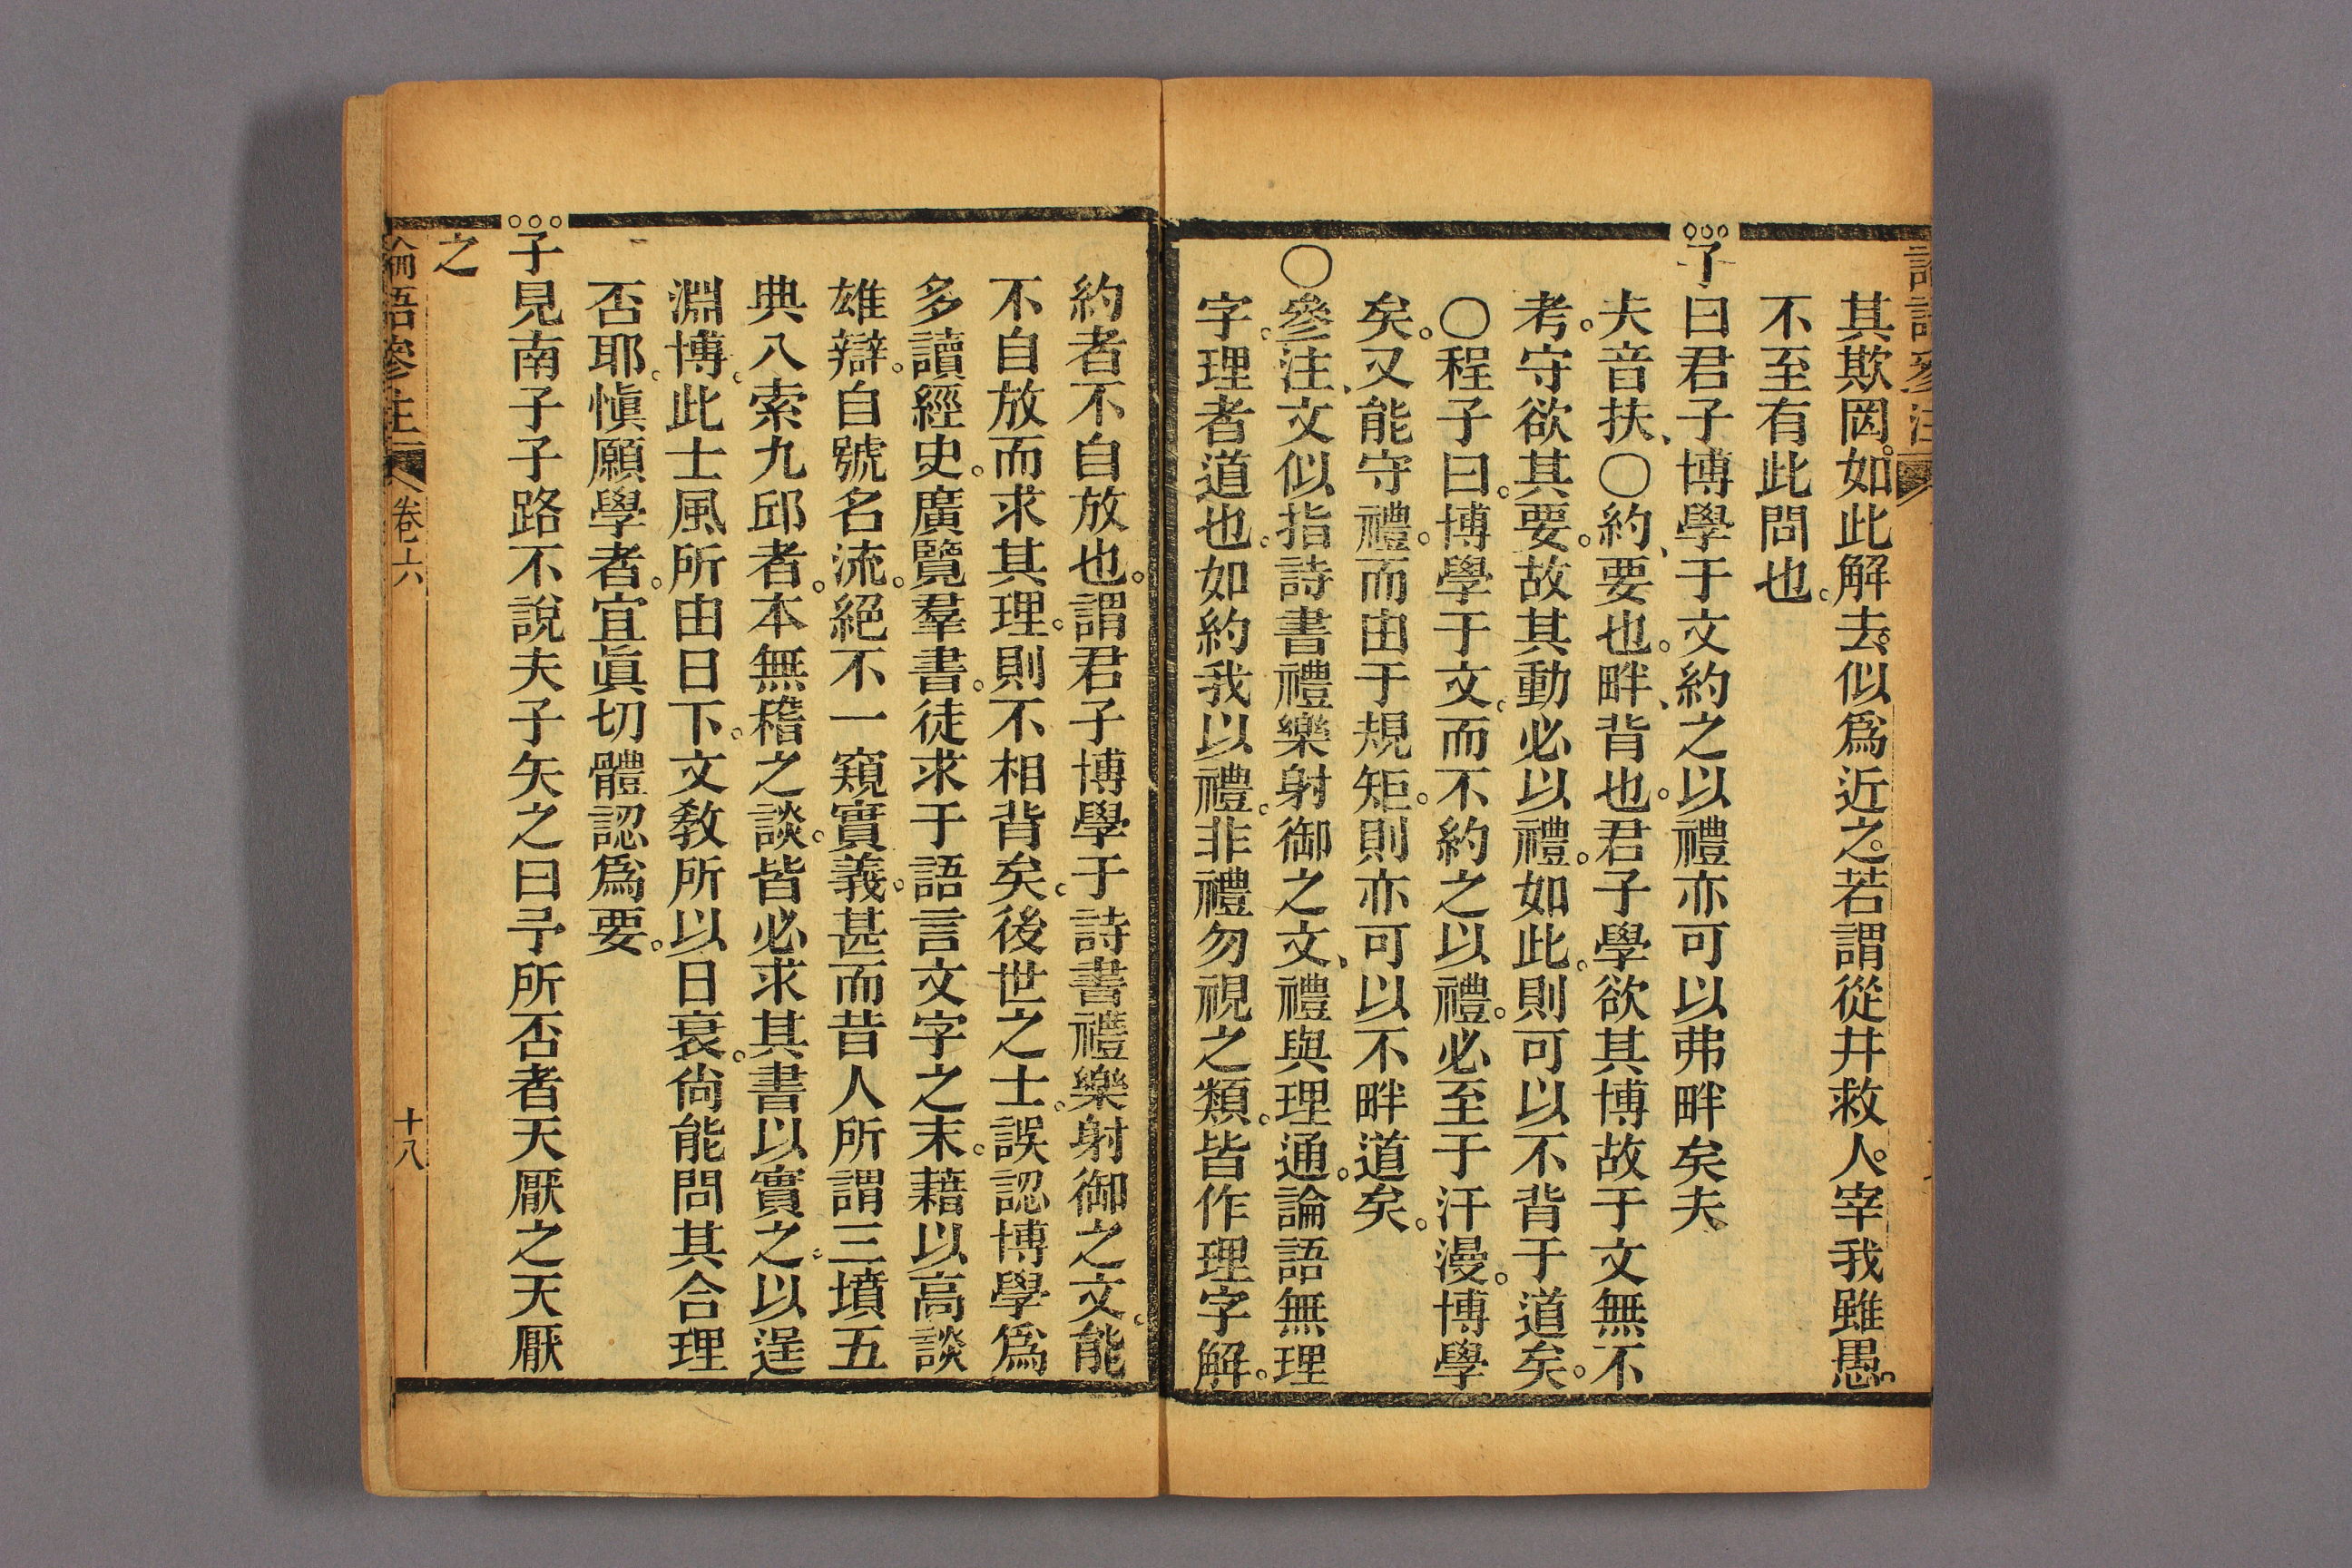 其欺罔。如此解去。似爲近之。若謂從井救人。宰我雖愚。
不至有此問也。
子曰君子博學于文約之以禮亦可以弗畔矣夫
夫音扶、〇約、要也。畔、背也。君子學欲其博故于文無不
考。守欲其要。故其動必以禮。如此。則可以不背于道矣。
〇程子曰。博學于文。而不約之以禮。必至于汗漫。博學
矣。又能守禮。而由于規矩。則亦可以不畔道矣。
〇參注、文似指詩書禮樂射御之文、禮與理通。論語無理
字。理者道也。如約我以禮。非禮勿視之類。皆作理字解。
約者不自放也。謂君子博學于詩書禮樂射御之文。能
不自放而求其理。則不相背矣。後世之士。誤認博學爲
多讀經史。廣覽羣書。徒求于語言文字之末。藉以高談
雄辯。自號名流。絕不一窺實義。甚而昔人所謂三墳五
典八索九邱者。本無稽之談。皆必求其書以實之。以逞
淵博。此士風所由日下。文敎所以日衰。尙能問其合理
否耶。愼願學者。宜眞切體認爲要。
子見南子子路不說夫子矢之曰予所否者天厭之天厭
之
論語參注
卷六
十八